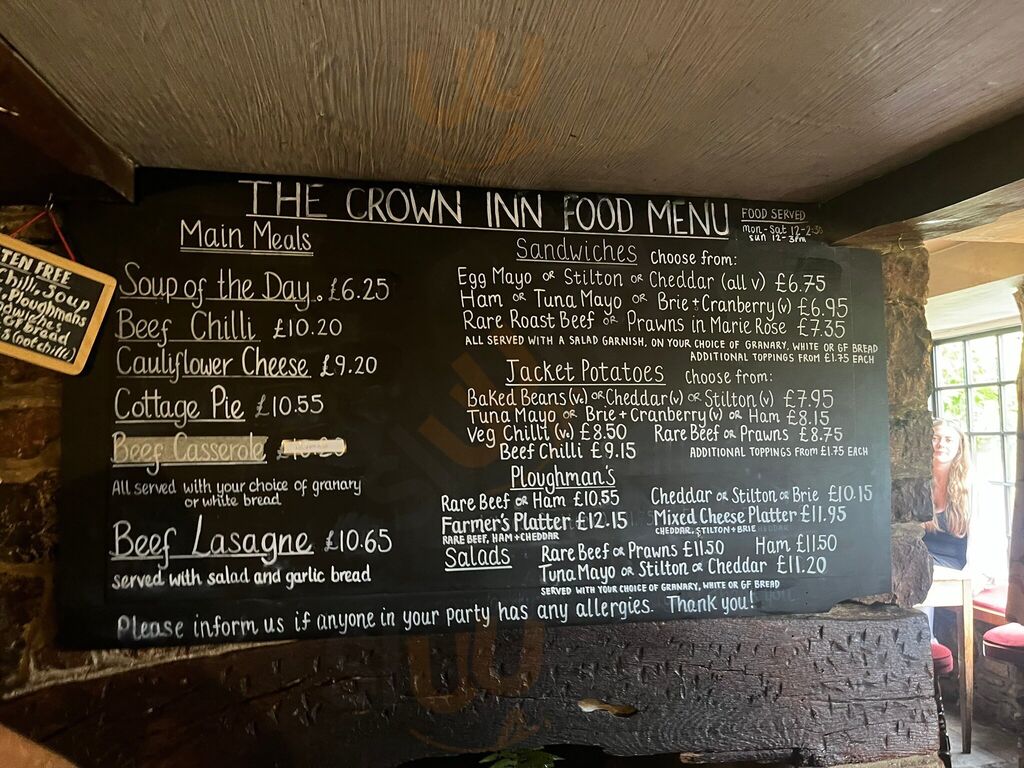 THE CROWN INN FOOD MENU
FOOD SERVED
Mon-Sat 12-2:30
Sun 12-3pm
Main Meals
Soup of the Day. £6.25
Beef Chilli £10.20
Cauliflower Cheese £9.20
Cottage Pie £10.55
Beef Casserole
All served with your choice of granary
or white bread
Beef Lasagne £10.65
served with salad and garlic bread
Sandwiches Choose from:
Egg Mayo OR Stilton OR Cheddar (all v) £6.75
Ham OR Tuna Mayo OR Brie + Cranberry (v) £6.95
Rare Roast Beef OR Prawns in Marie Rose £7.35
ALL SERVED WITH A SALAD GARNISH, ON YOUR CHOICE OF GRANARY, WHITE OR GF BREAD
ADDITIONAL TOPPINGS FROM £1.75 EACH
Jacket Potatoes Choose from:
Baked Beans (v) OR Cheddar (v) OR Stilton (v) £7.95
Tuna Mayo OR Brie + Cranberry (v) OR Ham £8.15
Veg Chilli (v) £8.50 Rare Beef OR Prawns £8.75
Beef Chilli £9.15 ADDITIONAL TOPPINGS FROM £1.75 EACH
Ploughman's
Rare Beef OR Ham £10.55 Cheddar OR Stilton OR Brie £10.15
Farmer's Platter £12.15 Mixed Cheese Platter £11.95
RARE BEEF, HAM + CHEDDAR CHEDDAR, STILTON + BRIE
Salads Rare Beef OR Prawns £11.50 Ham £11.50
Tuna Mayo OR Stilton OR Cheddar £11.20
SERVED WITH YOUR CHOICE OF GRANARY, WHITE OR GF BREAD
Please inform us if anyone in your party has any allergies. Thank you!
TEN FREE
Chilli, Soup
Ploughmans
GF bread
(not chilli)